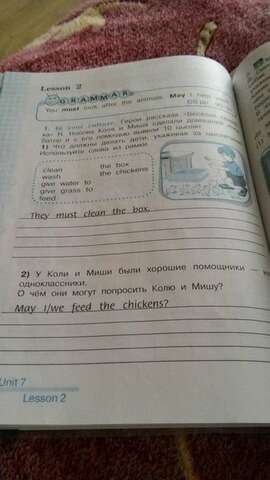 Lesson 2
GRAMMAR
You must look after the animals. May I
1. Герои рассказа
Н. Носова Коля и Миша сделали домашний
и с его помощью вывели 10 цыплят.
1) Что должны делать дети,
Используйте слова из рамки.
clean the box
wash the chickens
give water to
give grass to
feed
They must clean the box.
2) У Коли и Миши были хорошие помощники —
одноклассники.
О чём они могут попросить Колю и Мишу?
May I/we feed the chickens?
Unit 7
Lesson 2